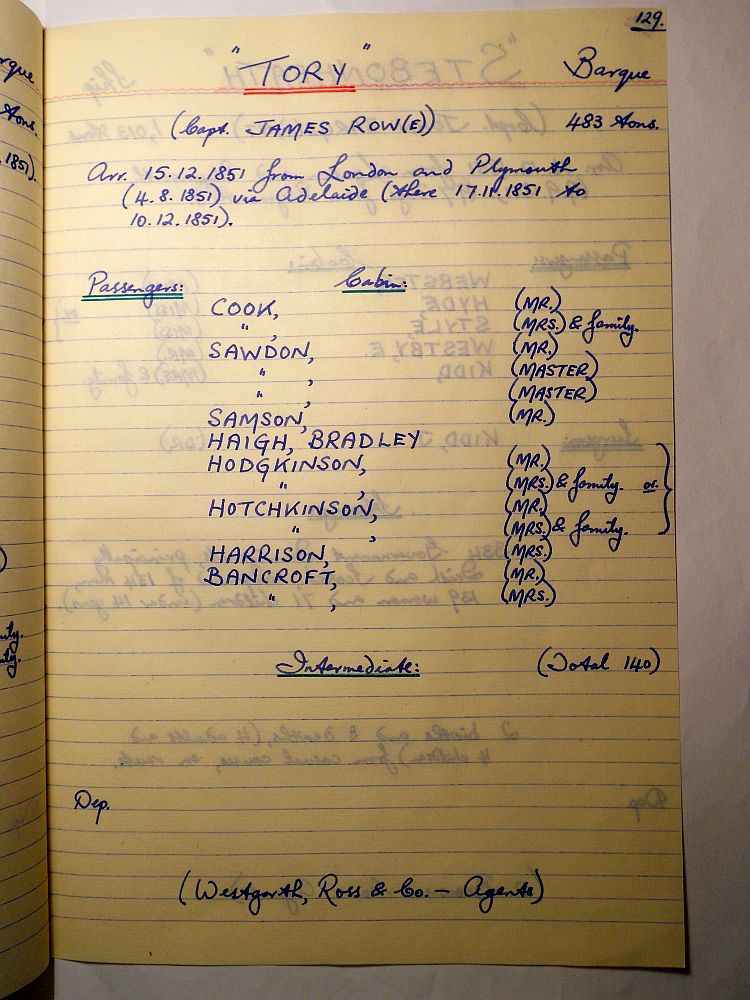 129.
"TORY" Barque
(Capt. JAMES ROW(E)) 483 tons.
Arr. 15.12.1851 from London and Plymouth
(4.8.1851) via Adelaide (there 17.11.1851 to
10.12.1851).
Passengers: Cabin:
COOK, (MR.)
" , (MRS.) & family.
SAWDON, (MR.)
" , (MASTER)
" , (MASTER)
SAMSON, (MR.)
HAIGH, BRADLEY
HODGKINSON, (MR.)
" , (MRS.) & family. or
HOTCHKINSON, (MR.)
" , (MRS.) & family.
HARRISON, (MRS.)
BANCROFT, (MR.)
" , (MRS.)
Intermediate: (Total 140)
Dep.
(Westgarth, Ross & Co. - Agents)